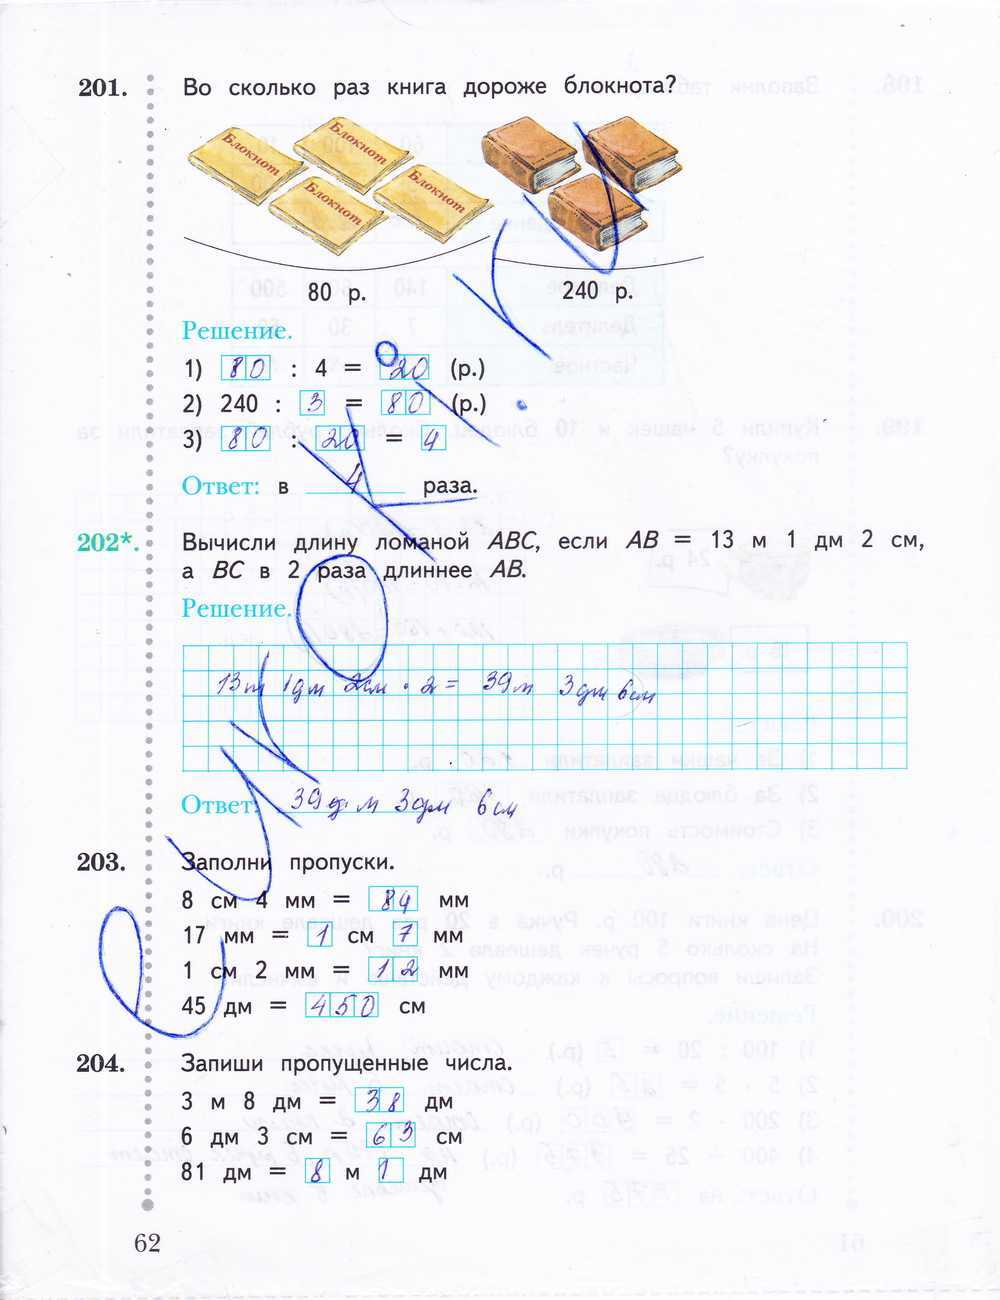 201. Во сколько раз книга дороже блокнота?
Блокнот Блокнот Блокнот Блокнот
80 р. 240 р.
Решение.
1) 80 : 4 = 20 (р.)
2) 240 : 3 = 80 (р.)
3) 80 : 20 = 4
Ответ: в 4 раза.
202*. Вычисли длину ломаной ABC, если AB = 13 м 1 дм 2 см,
а BC в 2 раза длиннее AB.
Решение.
13м 1дм 2см · 2 = 39м 3дм 6см
Ответ: 39 м 3дм 6см
203. Заполни пропуски.
8 см 4 мм = 84 мм
17 мм = 1 см 7 мм
1 см 2 мм = 12 мм
45 дм = 450 см
204. Запиши пропущенные числа.
3 м 8 дм = 38 дм
6 дм 3 см = 63 см
81 дм = 8 м 1 дм
62